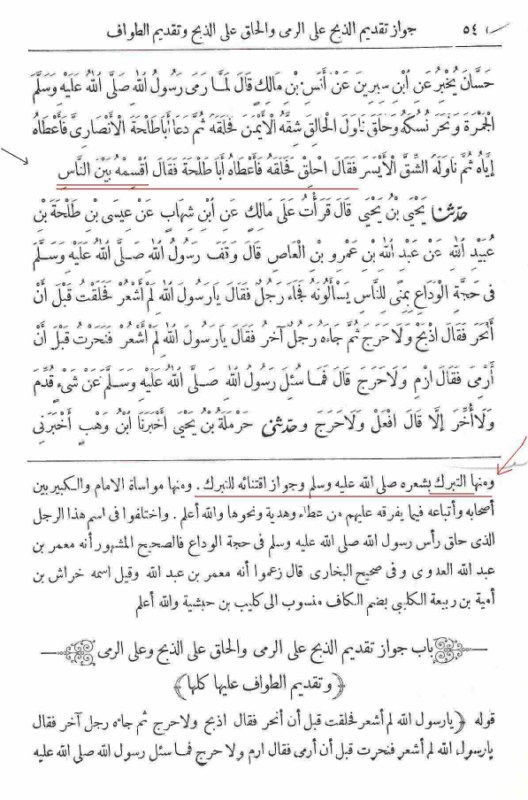 ٥٤ جواز تقديم الذبح على الرمى والحلق على الذبح وتقديم الطواف
حَسَّانَ يُخْبِرُ عَنِ ابْنِ سِيرِينَ عَنْ أَنَسِ بْنِ مَالِكٍ قَالَ لَمَّا رَمَى رَسُولُ اللهِ صَلَّى اللهُ عَلَيْهِ وَسَلَّمَ
الْجَمْرَةَ وَنَحَرَ نُسُكَهُ وَحَلَقَ نَاوَلَ الْحَالِقَ شِقَّهُ الْأَيْمَنَ فَحَلَقَهُ ثُمَّ دَعَا أَبَا طَلْحَةَ الْأَنْصَارِىَّ فَأَعْطَاهُ
إِيَّاهُ ثُمَّ نَاوَلَهُ الشِّقَّ الْأَيْسَرَ فَقَالَ احْلِقْ فَحَلَقَهُ فَأَعْطَاهُ أَبَا طَلْحَةَ فَقَالَ اقْسِمْهُ بَيْنَ النَّاسِ
حَدَّثَنَا يَحْيَى بْنُ يَحْيَى قَالَ قَرَأْتُ عَلَى مَالِكٍ عَنِ ابْنِ شِهَابٍ عَنْ عِيسَى بْنِ طَلْحَةَ بْنِ
عُبَيْدِ اللهِ عَنْ عَبْدِ اللهِ بْنِ عَمْرِو بْنِ الْعَاصِ قَالَ وَقَفَ رَسُولُ اللهِ صَلَّى اللهُ عَلَيْهِ وَسَلَّمَ
فِى حَجَّةِ الْوَدَاعِ بِمِنًى لِلنَّاسِ يَسْأَلُونَهُ فَجَاءَ رَجُلٌ فَقَالَ يَارَسُولَ اللهِ لَمْ أَشْعُرْ فَحَلَقْتُ قَبْلَ أَنْ
أَنْحَرَ فَقَالَ اذْبَحْ وَلَا حَرَجَ ثُمَّ جَاءَهُ رَجُلٌ آخَرُ فَقَالَ يَارَسُولَ اللهِ لَمْ أَشْعُرْ فَنَحَرْتُ قَبْلَ أَنْ
أَرْمِىَ فَقَالَ ارْمِ وَلَا حَرَجَ قَالَ فَمَا سُئِلَ رَسُولُ اللهِ صَلَّى اللهُ عَلَيْهِ وَسَلَّمَ عَنْ شَىْءٍ قُدِّمَ
وَلَا أُخِّرَ إِلَّا قَالَ افْعَلْ وَلَا حَرَجَ وَحَدَّثَنِى حَرْمَلَةُ بْنُ يَحْيَى أَخْبَرَنَا ابْنُ وَهْبٍ أَخْبَرَنِى
ومنها التبرك بشعره صلى الله عليه وسلم وجواز اقتنائه للتبرك . ومنها مواساة الامام والكبير بين
أصحابه وأتباعه فيما يفرقه عليهم من عطاء وهدية ونحوها والله أعلم . واختلفوا فى اسم هذا الرجل
الذى حلق رأس رسول الله صلى الله عليه وسلم فى حجة الوداع فالصحيح المشهور أنه معمر بن
عبد الله العدوى وفى صحيح البخارى قال زعموا أنه معمر بن عبد الله وقيل اسمه خراش بن
أمية بن ربيعة الكليبى بضم الكاف منسوب الى كليب بن حبشية والله أعلم
باب جواز تقديم الذبح على الرمى والحلق على الذبح وعلى الرمى
﴿وتقديم الطواف عليها كلها﴾
قوله ﴿يارسول الله لم أشعر فحلقت قبل أن أنحر فقال اذبح ولا حرج ثم جاءه رجل آخر فقال
يارسول الله لم أشعر فنحرت قبل أن أرمى فقال ارم ولا حرج فما سئل رسول الله صلى الله عليه